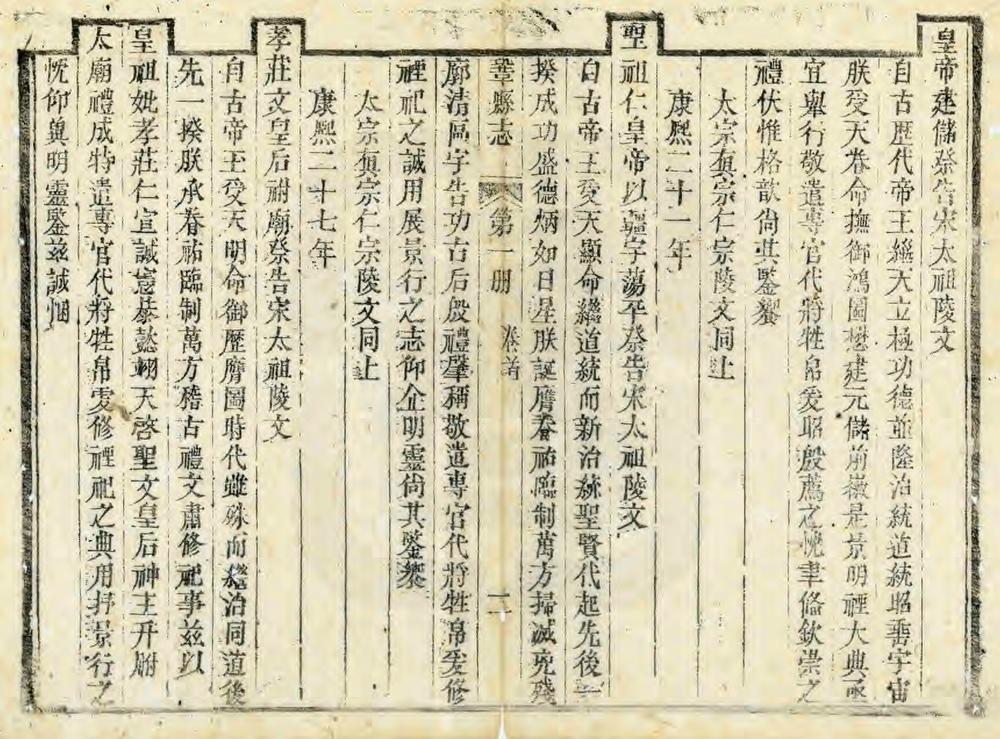 皇帝建儲祭告宋太祖陵文
自古歷代帝王繼天立極功德並隆治統道統昭垂宇宙
朕受天眷命撫御鴻圖懋建元儲前徽是景明禋大典亟
宜舉行敬遣專官代將牲帛爰昭殷薦之忱聿脩欽崇之
禮伏惟格歆尙其鑒饗
太宗眞宗仁宗陵文同上
康熙二十一年
聖祖仁皇帝以疆宇蕩平祭告宋太祖陵文
自古帝王受天顯命繼道統而新治統聖賢代起先後一
揆成功盛德炳如日星朕誕膺眷祐臨制萬方掃滅兇殘
鞏縣志 第一册 卷首 二
廓清區宇告功古后殷禮肇稱敬遣專官代將牲帛爰修
禋祀之誠用展景行之志仰企明靈尙其鑒饗
太宗眞宗仁宗陵文同上
康熙二十七年
孝莊文皇后祔廟祭告宋太祖陵文
自古帝王受天明命御歷膺圖時代雖殊而繼治同道後
先一揆朕承眷祐臨制萬方稽古禮文肅修祀事兹以
皇祖妣孝莊仁宣誠憲恭懿翊天啓聖文皇后神主升祔
太廟禮成特遣專官代將牲帛虔修禋祀之典用抒景行之
忱仰冀明靈鑒兹誠悃